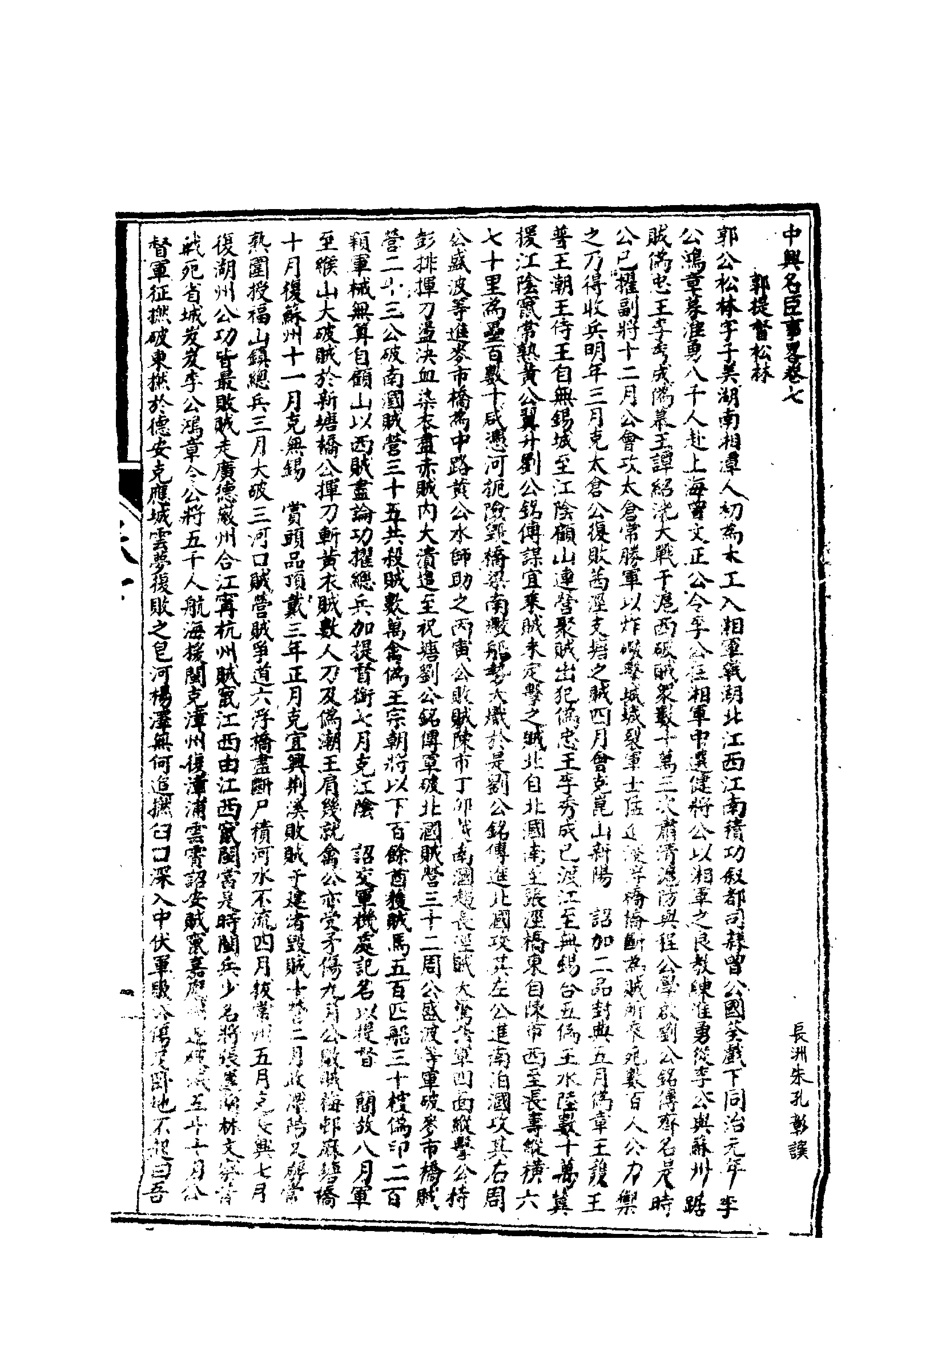 中興名臣事畧卷七
長洲朱孔彰譔
郭提督松林
郭公松林字子美湖南湘潭人初為木工入湘軍戰湖北江西江南積功敘都司隸曾公國荃戲下同治元年李
公鴻章募淮勇八千人赴上海曾文正公令李公在湘軍中選健將公以湘軍之良教練淮勇從李公與蘇州踞
賊偽忠王李秀成偽慕王譚紹洸大戰于滬西破賊眾數十萬三次肅清滬防與程公學啟劉公銘傳齊名是時
公已擢副將十二月公會攻太倉常勝軍以炸礮擊城城裂軍士猛進浮橋橋斷為賊所乘死數百人公力禦
之乃得收兵明年三月克太倉公復敗萬涇支塘之賊四月會克崑山新陽　詔加二品封典五月偽章王護王
普王潮王侍王自無錫城至江陰顧山連營聚賊出犯偽忠王李秀成已渡江至無錫合五偽王水陸數十萬冀
援江陰窺常熟黃公翼升劉公銘傳謀宜乘賊未定擊之賊北自北漍南至張涇橋東自陳市西至長壽縱橫六
七十里為壘百數十咸憑河扼險毀橋梁南漍船勢大熾於是劉公銘傳進北漍攻其左公進南漍攻其右周
公盛波等進麥市橋為中路黃公水師助之丙寅公敗賊陳市丁卯南漍長涇賊大驚四面縱擊公持
彭排揮刀盪決血染衣盡赤賊內大潰追至祝塘劉公銘傳軍破北漍賊營三十二周公盛波等軍破麥市橋賊
營二十三公破南漍賊營三十五共殺賊數萬禽偽王宗朝將以下百餘酋獲賊馬五百匹船三十艘偽印二百
顆軍械無算自顧山以西賊盡論功擢總兵加提督銜七月克江陰　詔交軍機處記名以提督　簡放八月軍
至緱山大破賊於新塘橋公揮刀斬黃衣賊數人刀及偽潮王肩幾就禽公亦受矛傷九月公敗賊梅邨麻塘橋
十月復蘇州十一月克無錫　賞頭品頂戴三年正月克宜興荊溪敗賊于建渚毀賊十二月攻溧陽又解常
熟圍授福山鎮總兵三月大破三河口賊營賊爭道六浮橋盡斷尸積河水不流四月復常州五月克長興七月
復湖州公功皆最敗賊走廣德嚴州合江甯杭州賊竄江西由江西竄閩當是時閩兵少名將張林文察皆
戰死省城岌岌李公鴻章令公將五千人航海援閩克漳州復漳浦雲霄詔安賊竄嘉十一月公
督軍征撚破東撚於德安克應城雲夢復敗之皂河楊澤無何追撚臼口深入中伏軍敗公傷足臥地不起曰吾